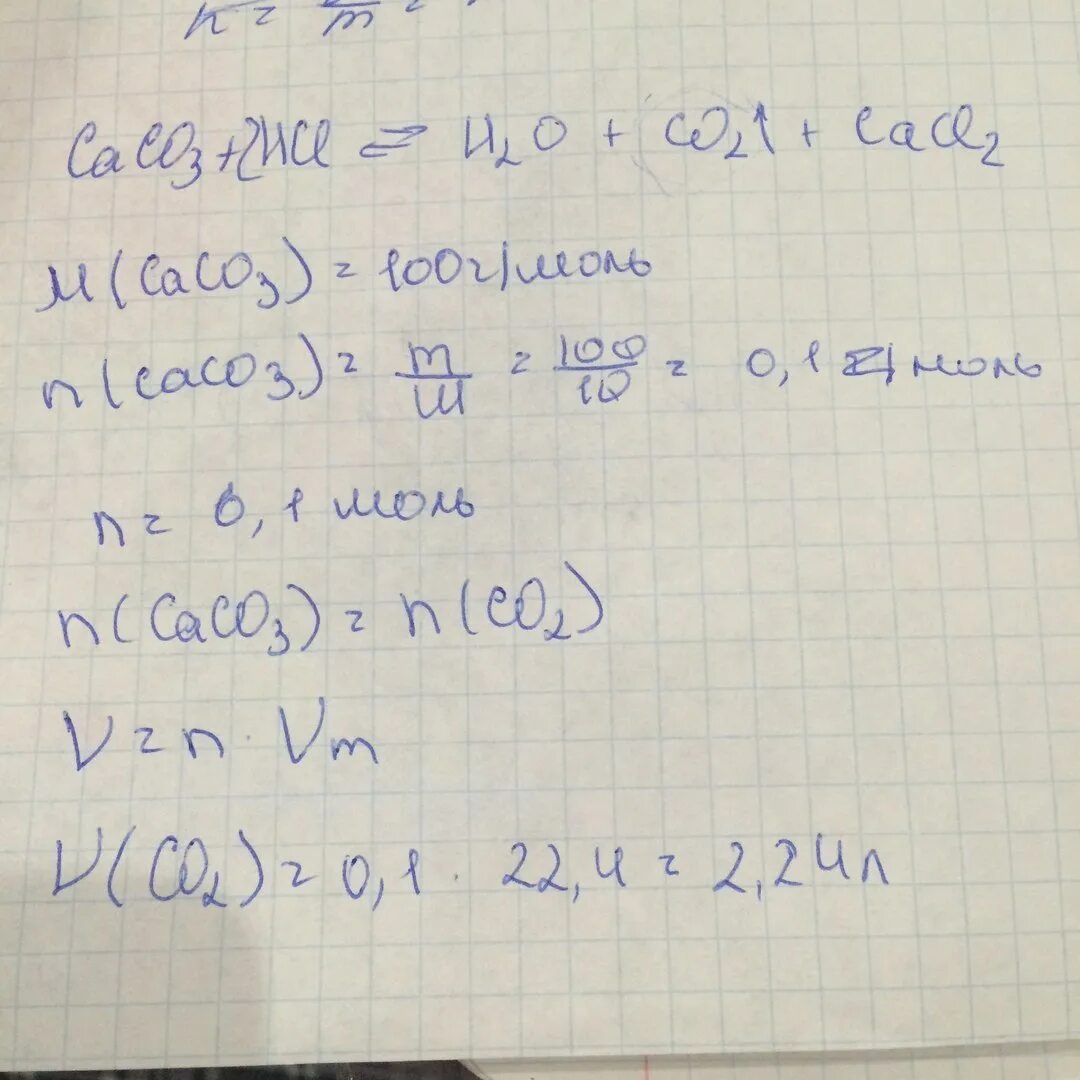 n = m =
CaCO3 + 2HCl ⇄ H2O + CO2↑ + CaCl2
M(CaCO3) = 100г/моль
n(CaCO3) = m/M = 100/10 = 0,1 моль
n = 0,1 моль
n(CaCO3) = n(CO2)
V = n · Vm
V(CO2) = 0,1 · 22,4 = 2,24л